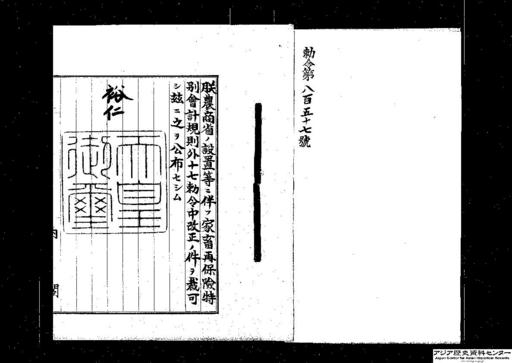 勅令第八百五十七號
朕農商省ノ設置等ニ伴フ家畜再保險特
別會計規則外十七勅令中改正ノ件ヲ裁可
シ茲ニ之ヲ公布セシム
裕仁
天皇
御璽
内閣
アジア歴史資料センター
Japan Center for Asian Historical Records